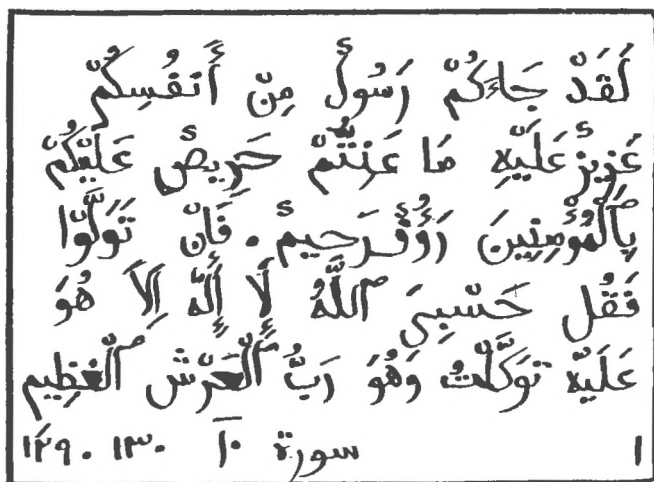 لَقَدْ جَاءَكُمْ رَسُولٌ مِنْ أَنفُسِكُمْ
عَزِيزٌ عَلَيْهِ مَا عَنِتُّمْ حَرِيصٌ عَلَيْكُمْ
بِالْمُؤْمِنِينَ رَؤُفٌ رَحِيمٌ. فَإِنْ تَوَلَّوْا
فَقُل حَسْبِيَ اللَّهُ لَا إِلَهَ إِلَّا هُوَ
عَلَيْهِ تَوَكَّلْتُ وَهُوَ رَبُّ الْعَرْشِ الْعَظِيمِ
١ سورة ١٠ ١٣٠.١٢٩